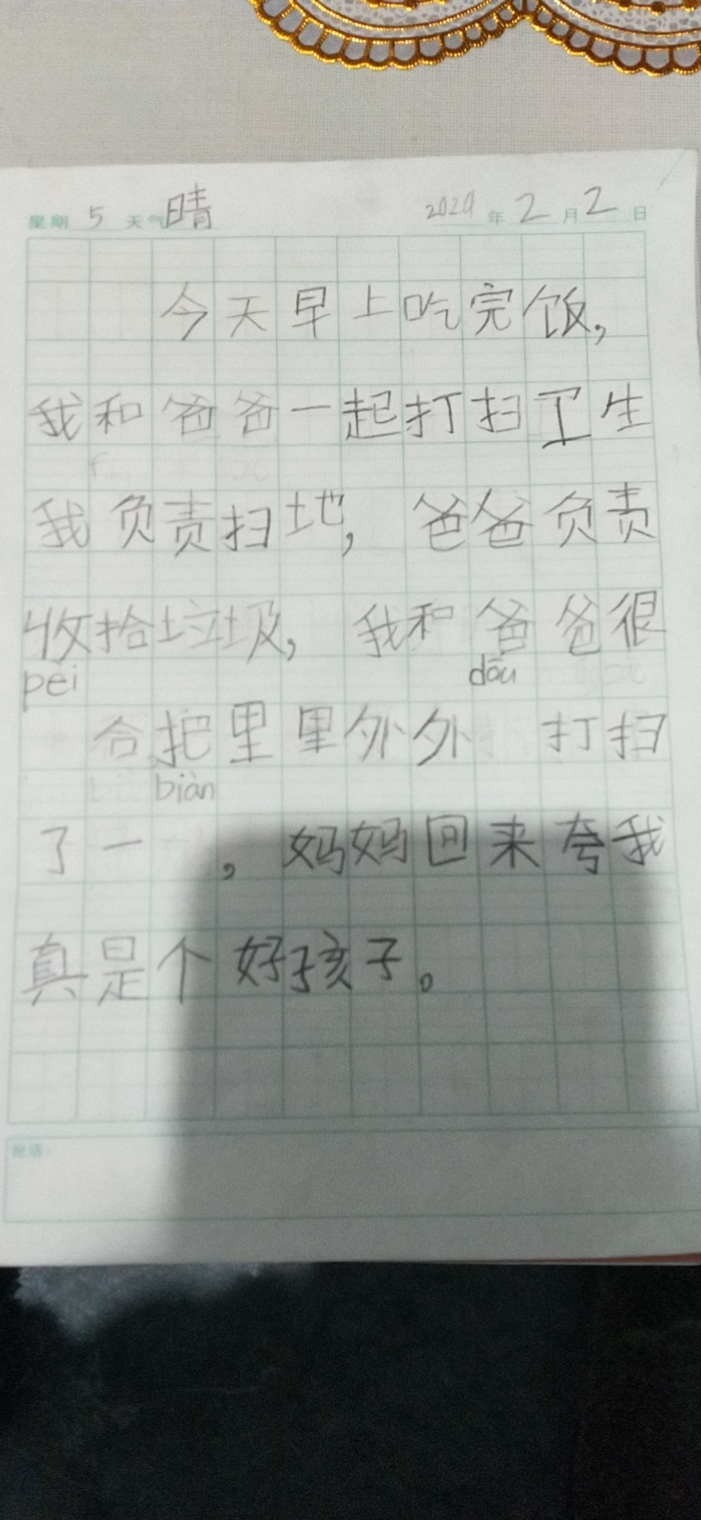 星期 5 天气 晴 2024 年 2 月 2 日
今天早上吃完饭,
我和爸爸一起打扫卫生
我负责扫地,爸爸负责
收拾垃圾,我和爸爸很
pei dōu
合把里里外外 打扫
biàn
了一 ,妈妈回来夸我
真是个好孩子。